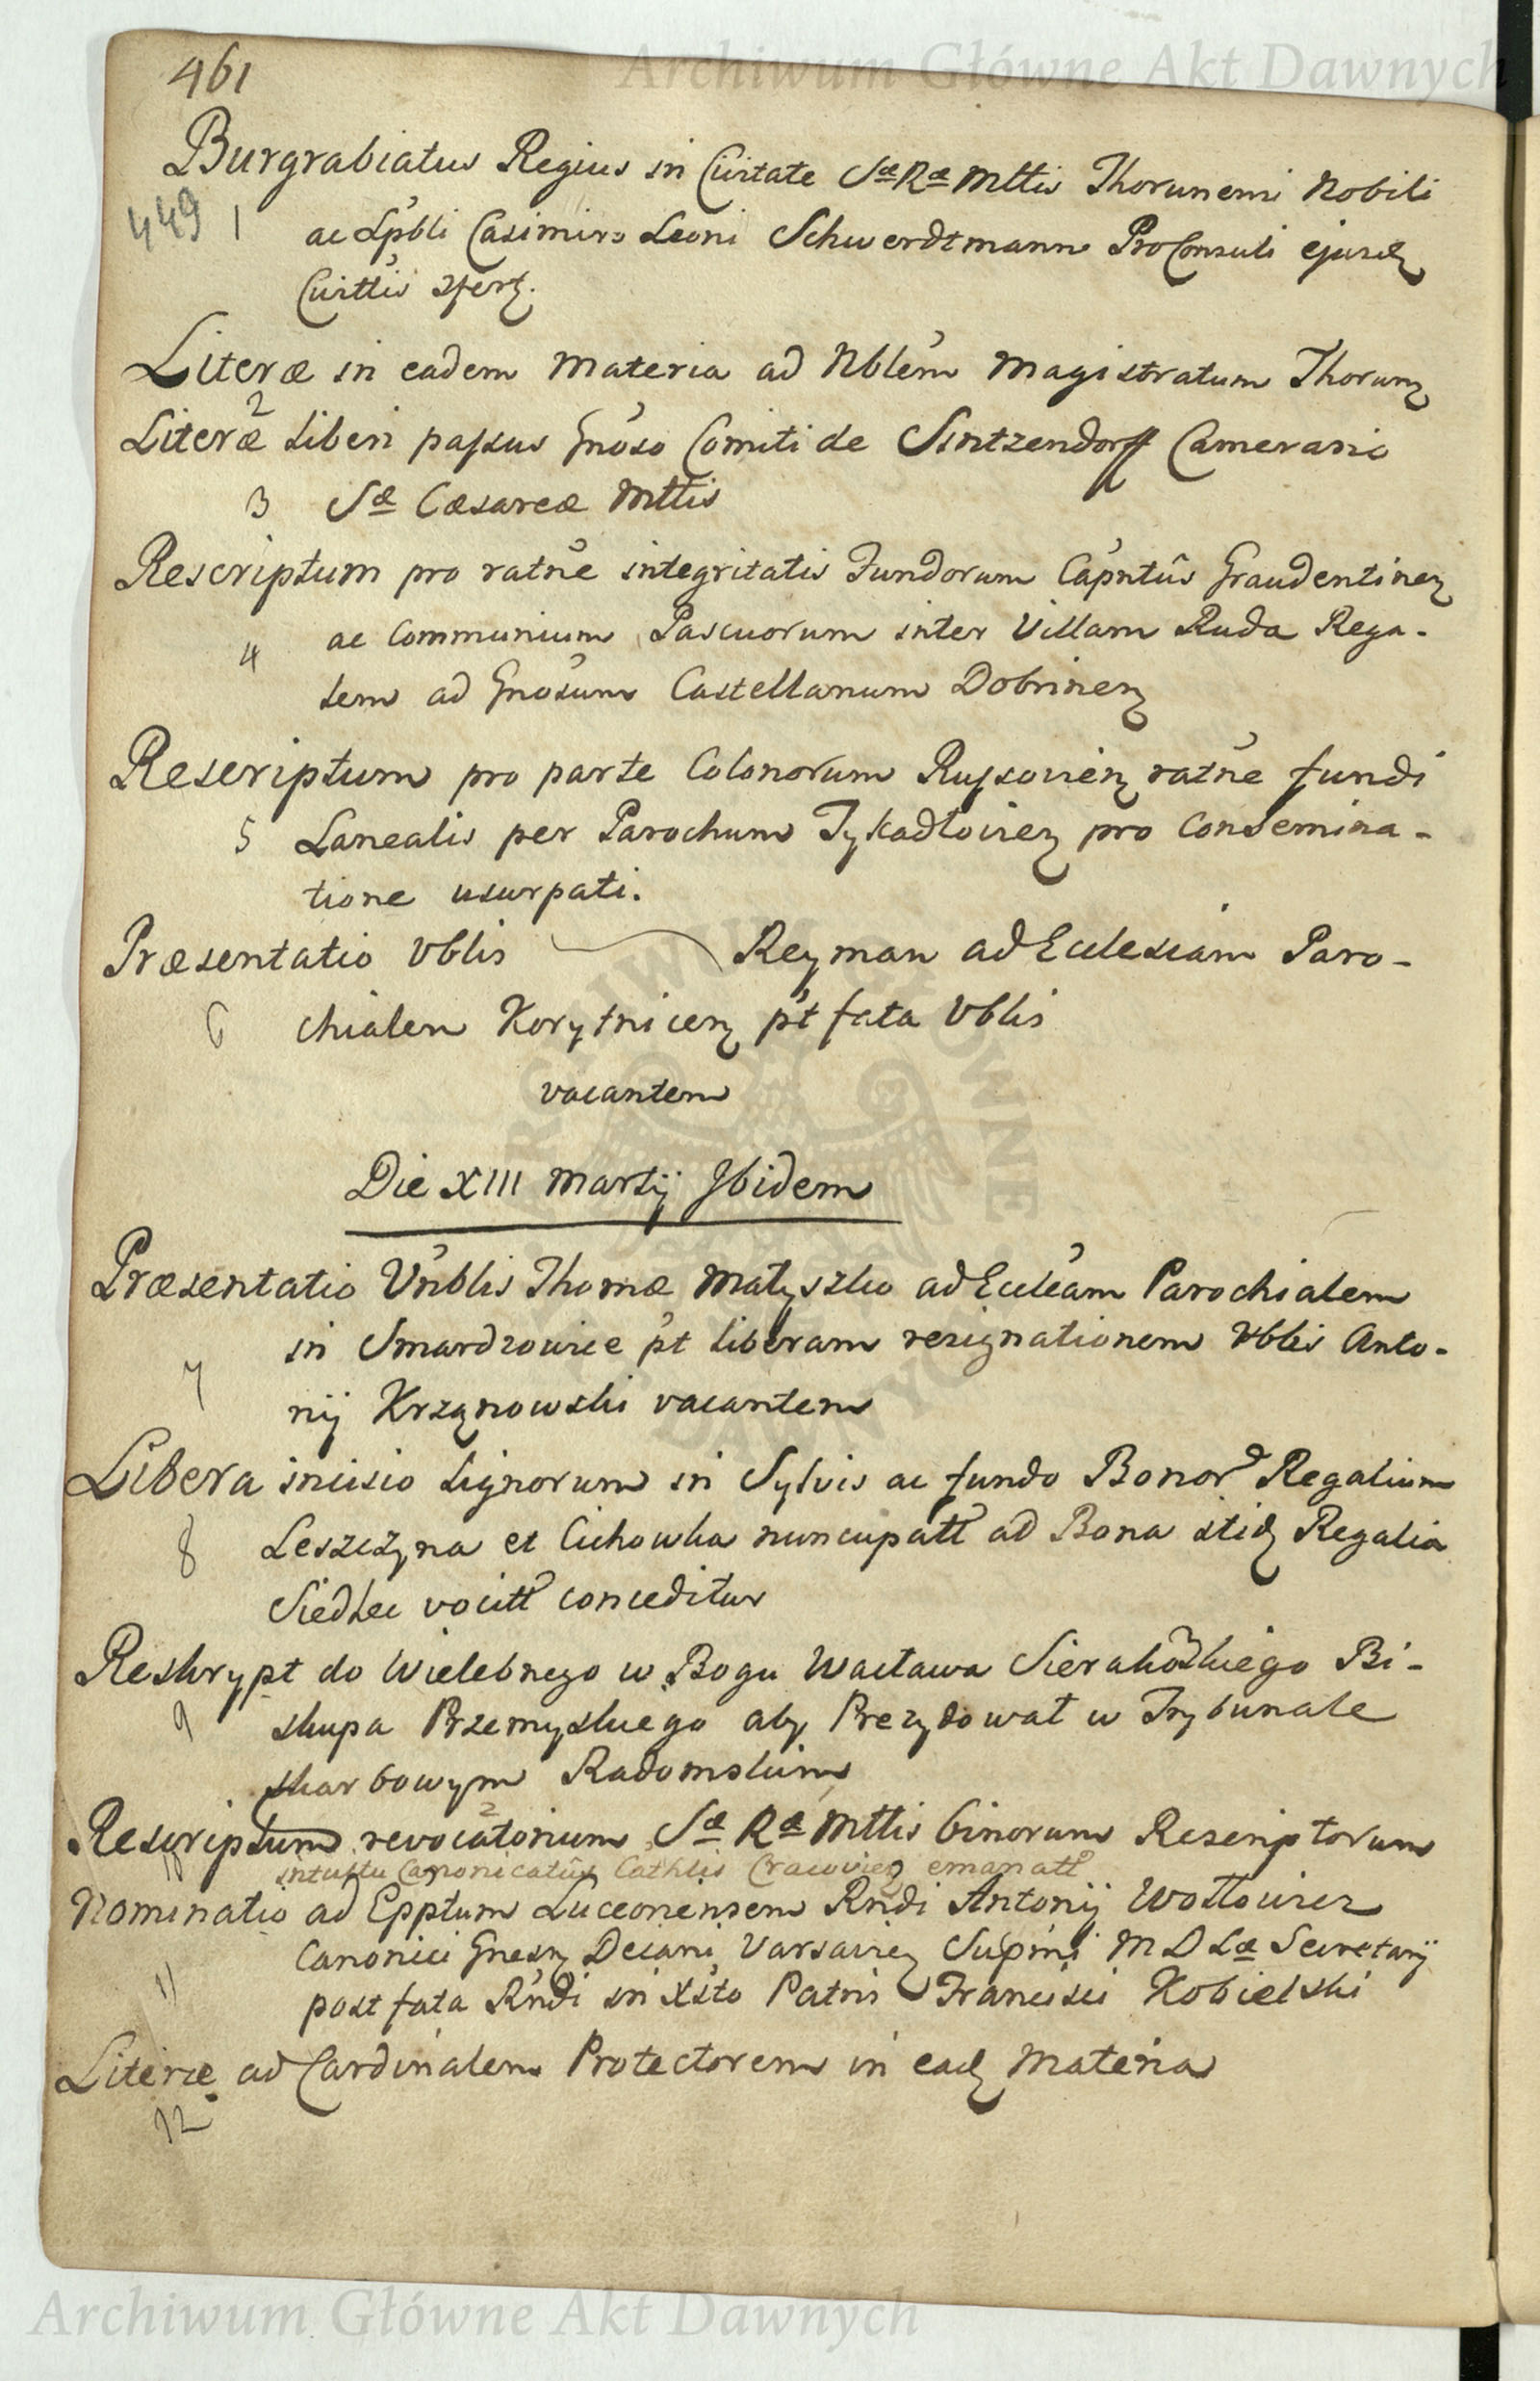 Archiwum Główne Akt Dawnych
461
Burgrabiatus Regius in Civitate Sæ Ræ Mttis Thorunensi Nobili
449 1 ac Spbli Casimiro Leoni Schwerdtmann ProConsuli ejusdq
Civittis
Literæ in eadem Materia ad Nblem Magistratum Thorunq
2
Literæ Liberi passus Gnoso Comiti de Sintzendorff Camerario
3 Sæ Cæsareæ Mttis
Rescriptum pro ratne integritatis Fundorum Capntus Graudentinenq
4 ac Communium Pascuorum inter Villam Ruda Rega-
lem ad Gnosum Castellanum Dobrinenq
Rescriptum pro parte Colonorum Russovienq ratne fundi
5 Lanealis per Parochum Tykadlovienq pro Consemina-
tione usurpati.
Præsentatio Vblis Reyman ad Ecclesiam Paro-
6 chialem Korytnicenq pt fata Vblis
vacantem
Die XIII Martij Ibidem
Præsentatio Vnblis Thomæ Matyszko ad Eccleam Parochialem
in Smardzowice pt liberam resignationem Vblis Anto-
7 nij Krzynowski vacantem
Libera incisio Lignorum in Sylvis ac fundo Bonor Regalium
8 Leszczyna et Cichowka nuncupatt ad Bona itidq Regalia
Siedlec vocitt conceditur
Reskrypt do Wielebnego w Bogu Wacława Sierakowskiego Bi-
9 skupa Przemyskiego aby Prezydował w Trybunale
skarbowym Radomskim
Rescriptum revocatorium Sæ Ræ Mttis binorum Rescriptorum
10 intuitu Canonicatus Cathlis Cracovienq emanatt
Nominatio ad Epptum Luceoriensem Rndi Antonij Wołłowicz
Canonici Gnesnq Decani Varsavienq Supmi M D Læ Secretarij
11 post fata Rndi in Xsto Patris Francisci Kobielski
Literæ ad Cardinalem Protectorem in eadq Materia
12
Archiwum Główne Akt Dawnych